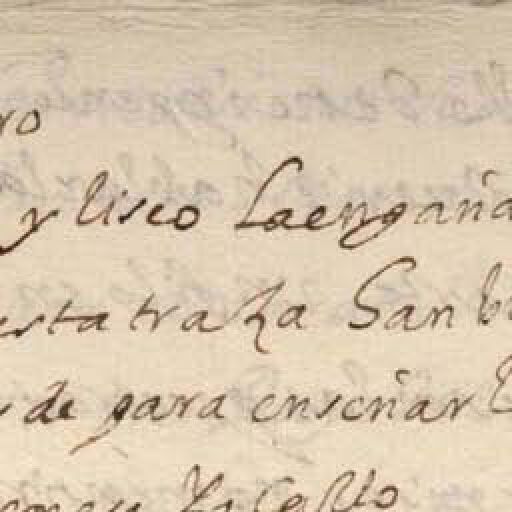 ro
y liseo Laengaña
esta traza San b
de para enseñar